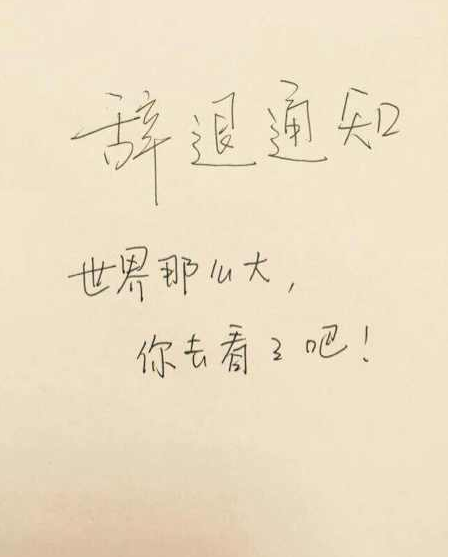 辞退通知
世界那么大,
你去看了吧!